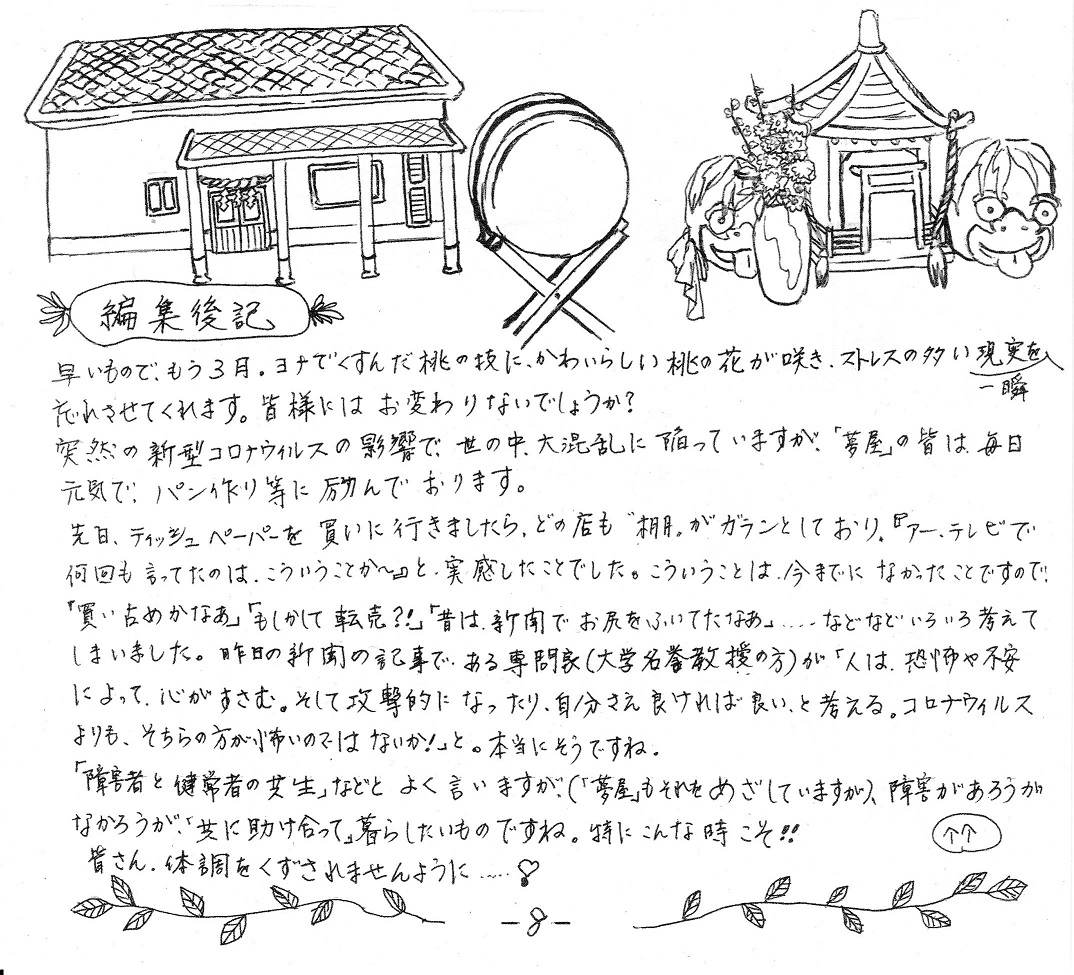 編集後記
早いもので、もう3月。ヨナでくすんだ桃の枝に、かわいらしい桃の花が咲き、ストレスの多い現実を
一瞬
忘れさせてくれます。皆様にはお変わりないでしょうか?
突然の新型コロナウィルスの影響で、世の中、大混乱に陥っていますが、「夢屋」の皆は、毎日
元気で、パン作り等に励んでおります。
先日、ティッシュペーパーを買いに行きましたら、どの店も〝棚〟がガランとしており、『アー、テレビで
何回も言ってたのは、こういうことか〜』と、実感したことでした。こういうことは、今までになかったことですので、
「買い占めかなあ」「もしかして転売?!」「昔は、新聞でお尻をふいてたなあ」.....などなどいろいろ考えて
しまいました。昨日の新聞の記事で、ある専門家(大学名誉教授の方)が「人は、恐怖や不安
によって、心がすさむ。そして攻撃的になったり、自分さえ良ければ良い、と考える。コロナウィルス
よりも、そちらの方が怖いのではないか!」と。本当にそうですね。
「障害者と健常者の共生」などとよく言いますが、(「夢屋」もそれをめざしていますが)、障害があろうが
なかろうが、「共に助け合って」暮らしたいものですね。特にこんな時こそ!!
皆さん、体調をくずされませんように.....
-8-